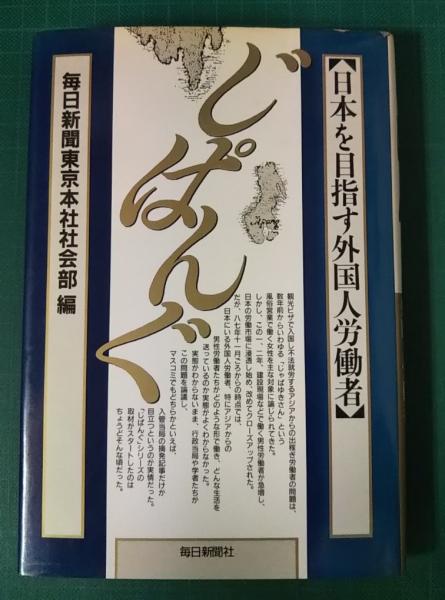 【日本を目指す外国人労働者】
じぱんぐ
毎日新聞東京本社社会部 編
観光ビザで入国し不法就労するアジアからの出稼ぎ労働者の問題は、
数年前からいわゆる「じゃぱゆきさん」という
風俗営業で働く女性を主な対象に論じられてきた。
しかし、この一、二年、建設現場などで働く男性労働者が急増し、
日本の労働市場に浸透し始め、改めてクローズアップされた。
だが、八七年十一月ごろからの時点では、
日本にいる外国人労働者、特にアジアからの
男性労働者たちがどのような形で働き、どんな生活を
送っているのか実態がよくわからなかった。
実態がわからないまま、行政当局や学者たちが
この問題を論議し、
マスコミでもどちらかといえば、
入管当局の摘発記事だけが
目立つというのが実情だった。
「じぱんぐ」シリーズの
取材がスタートしたのは
ちょうどそんな頃だった。
毎日新聞社